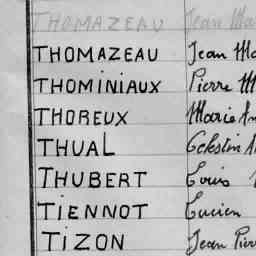 THOMAZEAU Jean Ma
THOMAZEAU Jean Ma
THOMINIAUX Pierre M
THOREUX Marie An
THUAL Célestin
THUBERT Louis
TIENNOT Lucien
TIZON Jean Pierr